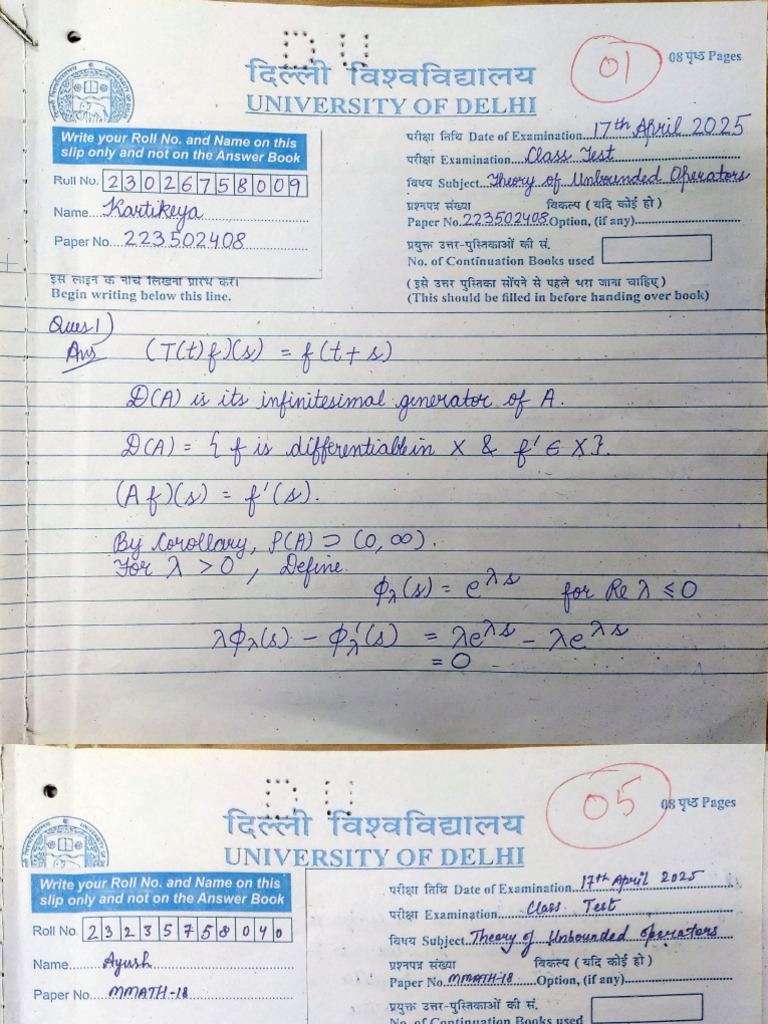 D U
01
08 पृष्ठ Pages
दिल्ली विश्वविद्यालय
UNIVERSITY OF DELHI
Write your Roll No. and Name on this
slip only and not on the Answer Book
Roll No. 23026758009
Name Kartikeya
Paper No. 223502408
परीक्षा तिथि Date of Examination 17th April 2025
परीक्षा Examination Class Test
विषय Subject Theory of Unbounded Operators
प्रश्नपत्र संख्या विकल्प ( यदि कोई हो )
Paper No. 223502408 Option, (if any)
प्रयुक्त उत्तर-पुस्तिकाओं की सं.
No. of Continuation Books used
इस लाइन के नीचे लिखना प्रारंभ करें।
Begin writing below this line.
( इसे उत्तर पुस्तिका सोंपने से पहले भरा जाना चाहिए )
(This should be filled in before handing over book)
Ques 1)
Ans (T(t)f)(s) = f(t+s)
D(A) is its infinitesimal generator of A.
D(A) = { f is differentiable in X & f' ∈ X}.
(Af)(s) = f'(s).
By Corollary, ρ(A) ⊃ (0, ∞).
For λ > 0, Define
ϕλ(s) = e^λs for Re λ ≤ 0
λϕλ(s) - ϕ'λ(s) = λe^λs - λe^λs
= 0
D U
05
08 पृष्ठ Pages
दिल्ली विश्वविद्यालय
UNIVERSITY OF DELHI
Write your Roll No. and Name on this
slip only and not on the Answer Book
Roll No. 23235758040
Name Ayush
Paper No. MMATH-18
परीक्षा तिथि Date of Examination 17th April 2025
परीक्षा Examination Class Test
विषय Subject Theory of Unbounded operators
प्रश्नपत्र संख्या विकल्प ( यदि कोई हो )
Paper No. MMATH-18 Option, (if any)
प्रयुक्त उत्तर-पुस्तिकाओं की सं.
No. of Continuation Books used